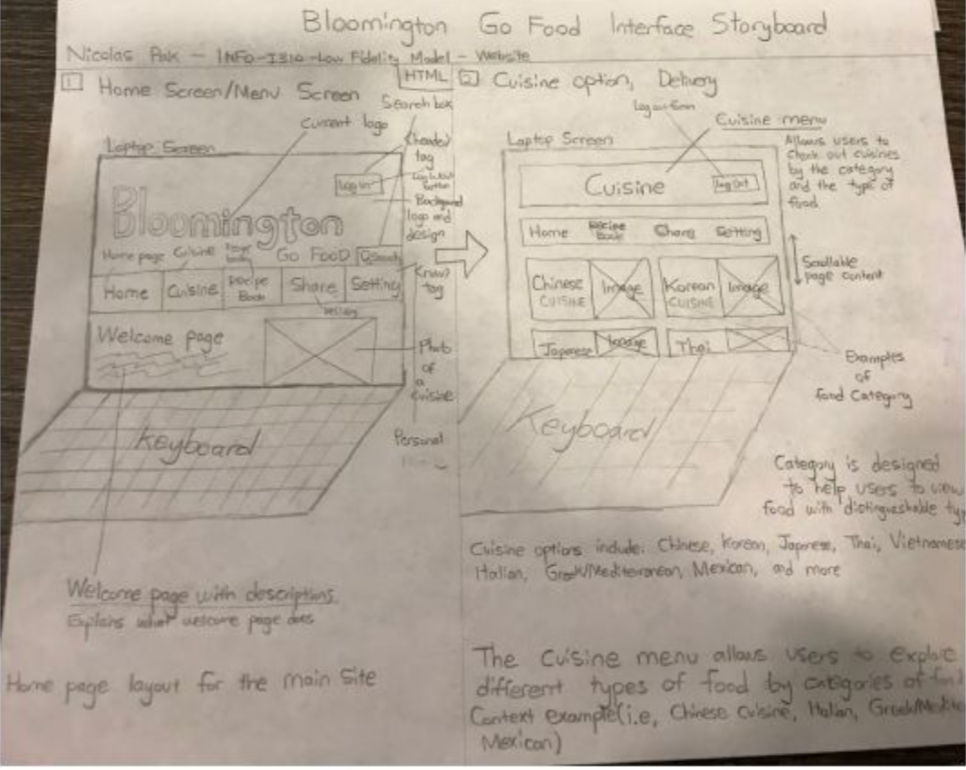 Bloomington Go Food Interface Storyboard
Nicolas Pak - INFO-I310-Low Fidelity Model - Website
1 Home Screen/Menu Screen
HTML
Search box
Current logo
Laptop Screen
<header>
tag
Log in
Button
Background
logo and
design
Bloomington
Home page Cuisine Go Food Search
Home Cuisine Recipe Book Share Setting
<nav>
tag
Welcome page
Photo
of
a
cuisine
Keyboard
Personal
Welcome page with descriptions
Explains what welcome page does
Home page layout for the main site
2 Cuisine option, Delivery
Log out
Cuisine menu
Laptop Screen
Allows users to
check out cuisines
by the category
and the type of
food
Cuisine Log Out
Home Recipe Book Share Setting
Scrollable
page content
Chinese CUISINE Image Korean CUISINE Image
Japanese Image Thai
Examples
of
food Category
Keyboard
Category is designed
to help users to view
food with distinguishable
Cuisine options include: Chinese, Korean, Japnese, Thai, Vietnamese
Italian, Greek/Mediterranean, Mexican, and more
The Cuisine menu allows users to explore
different types of food by categories of
Context example(i.e, Chinese Cuisine, Italian,
Mexican)